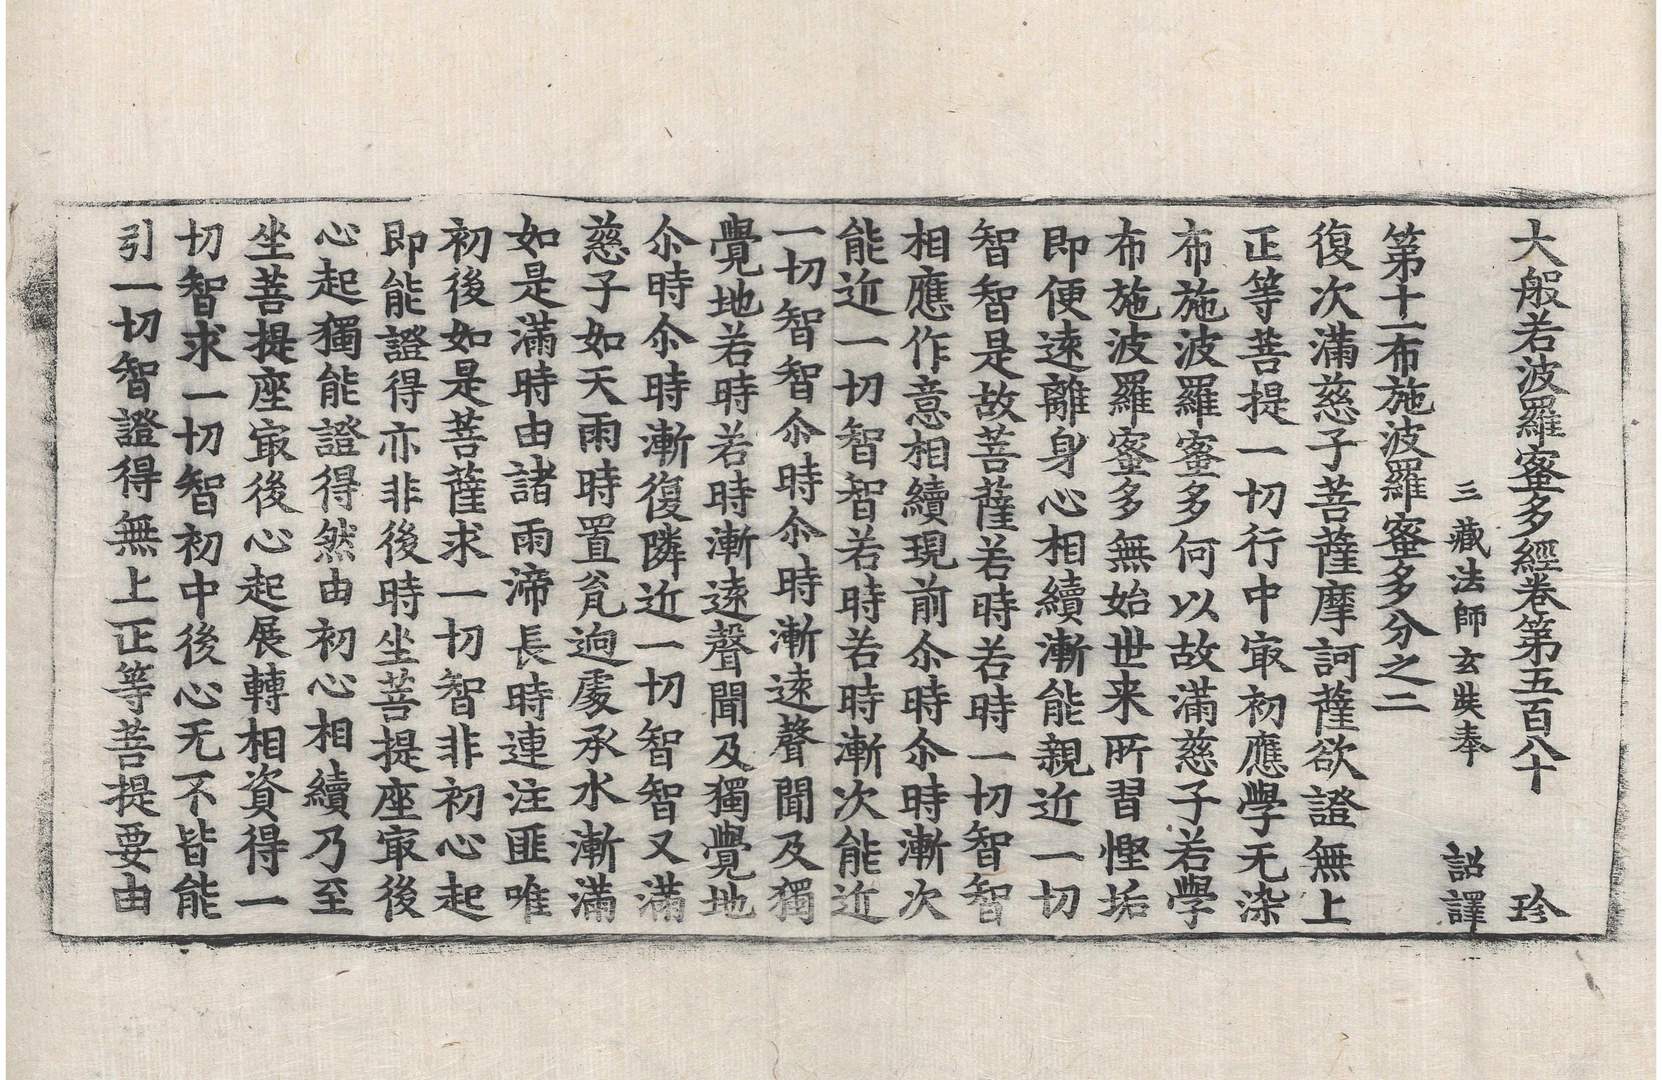 大般若波羅蜜多經卷第五百八十 珍
三藏法師玄奘奉 詔譯
第十一布施波羅蜜多分之二
復次滿慈子菩薩摩訶薩欲證無上
正等菩提一切行中㝡初應學无染
布施波羅蜜多何以故滿慈子若學
布施波羅蜜多無始世来所習慳垢
即便遠離身心相續漸能親近一切
智智是故菩薩若時若時一切智智
相應作意相續現前尒時尒時漸次
能近一切智智若時若時漸次能近
一切智智尒時尒時漸遠聲聞及獨
覺地若時若時漸遠聲聞及獨覺地
尒時尒時漸復隣近一切智智又滿
慈子如天雨時置瓮逈處承水漸滿
如是滿時由諸雨渧長時連注匪唯
初後如是菩薩求一切智非初心起
即能證得亦非後時坐菩提座㝡後
心起獨能證得然由初心相續乃至
坐菩提座㝡後心起展轉相資得一
切智求一切智初中後心无不皆能
引一切智證得無上正等菩提要由